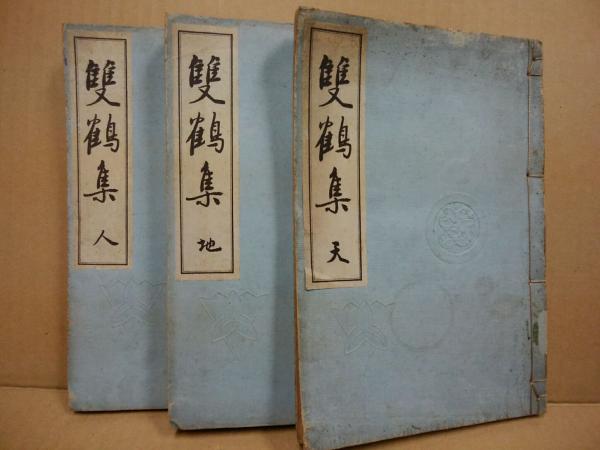 雙鶴集 天
雙鶴集 地
雙鶴集 人